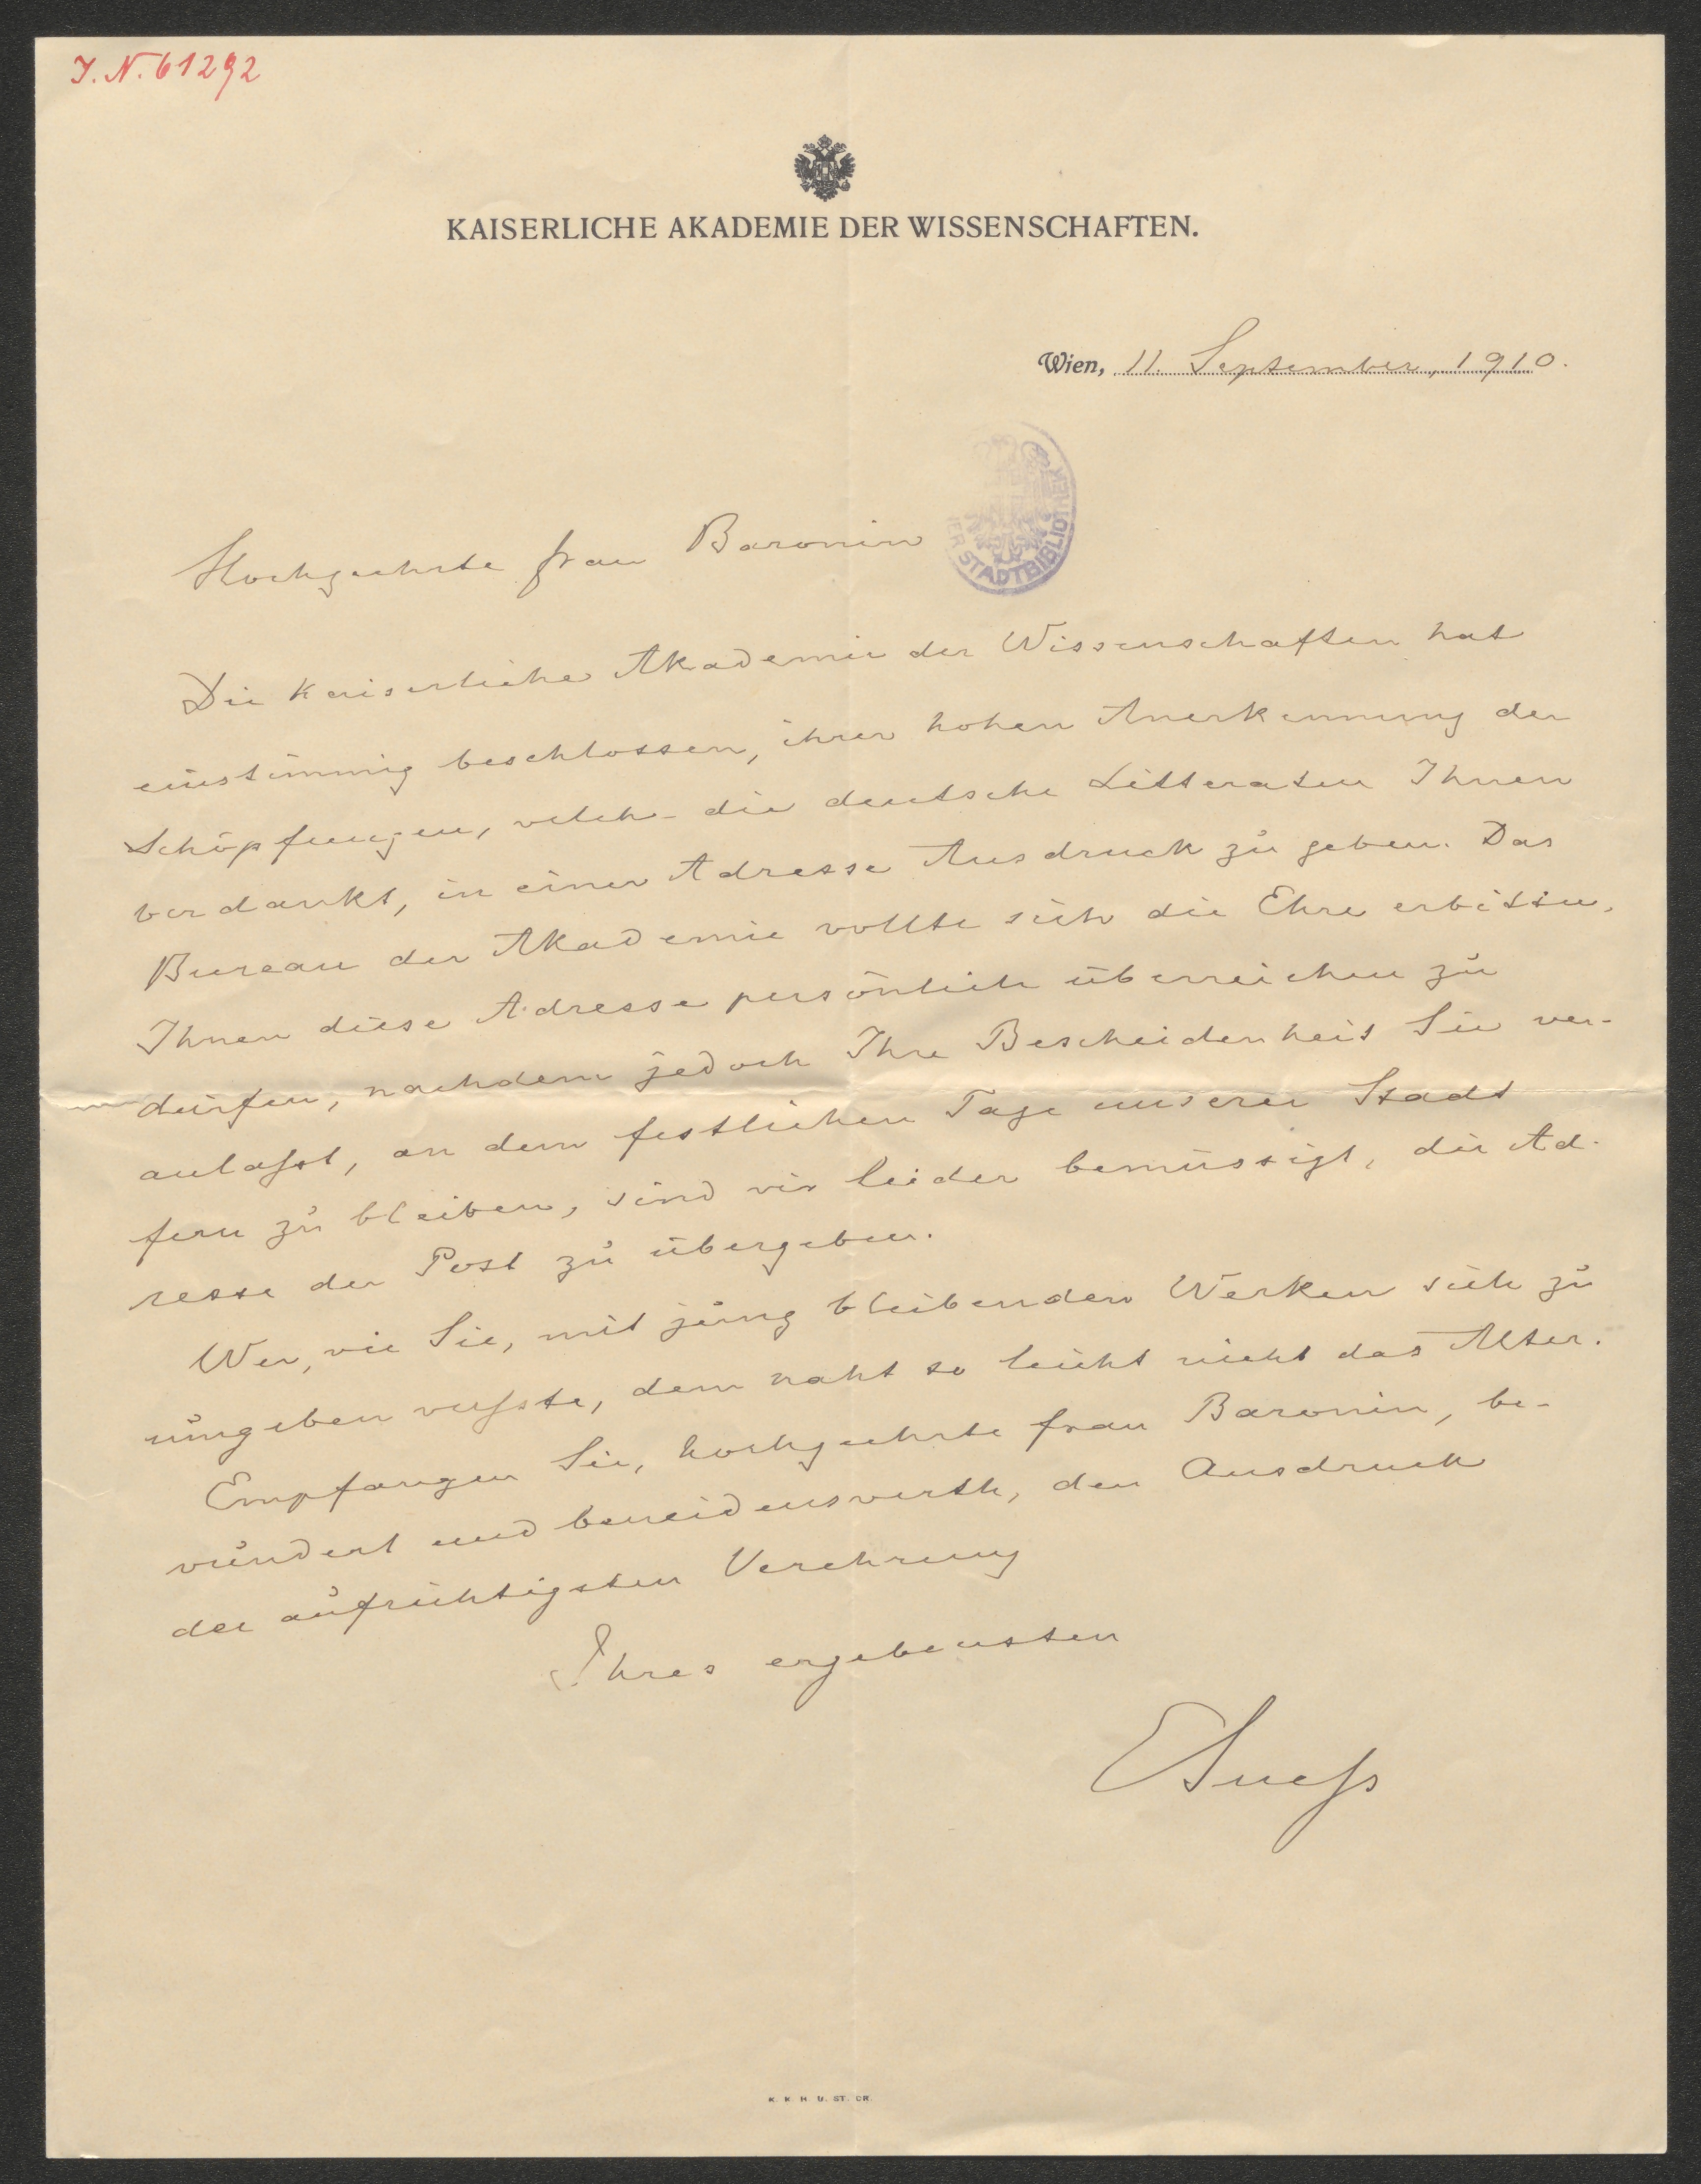 J. N. 61292
KAISERLICHE AKADEMIE DER WISSENSCHAFTEN.
Wien, 11. September, 1910.
STADTBIBLIOTHEK
Hochgeehrte Frau Baronin
Die Kaiserliche Akademie der Wissenschaften hat
einstimmig beschlossen, ihrer hohen Anerkennung der
Schöpfungen, welche die deutsche Litteratur Ihnen
verdankt, in einer Adresse Ausdruck zu geben. Das
Bureau der Akademie wollte sich die Ehre erbitten,
Ihnen diese Adresse persönlich überreichen zu
dürfen, nachdem jedoch Ihre Bescheidenheit Sie ver-
anlaßt, an dem festlichen Tage unserer Stadt
fern zu bleiben, sind wir leider bemüssigt, die Ad-
resse der Post zu übergeben.
Wer, wie Sie, mit jung bleibenden Werken sich zu
umgeben wußte, dem naht so leicht nicht das Alter.
Empfangen Sie, hochgeehrte Frau Baronin, be-
wundert und beneidenswerth, den Ausdruck
der aufrichtigsten Verehrung
Ihres ergebensten
ESueß
K. K. H. U. ST. DR.